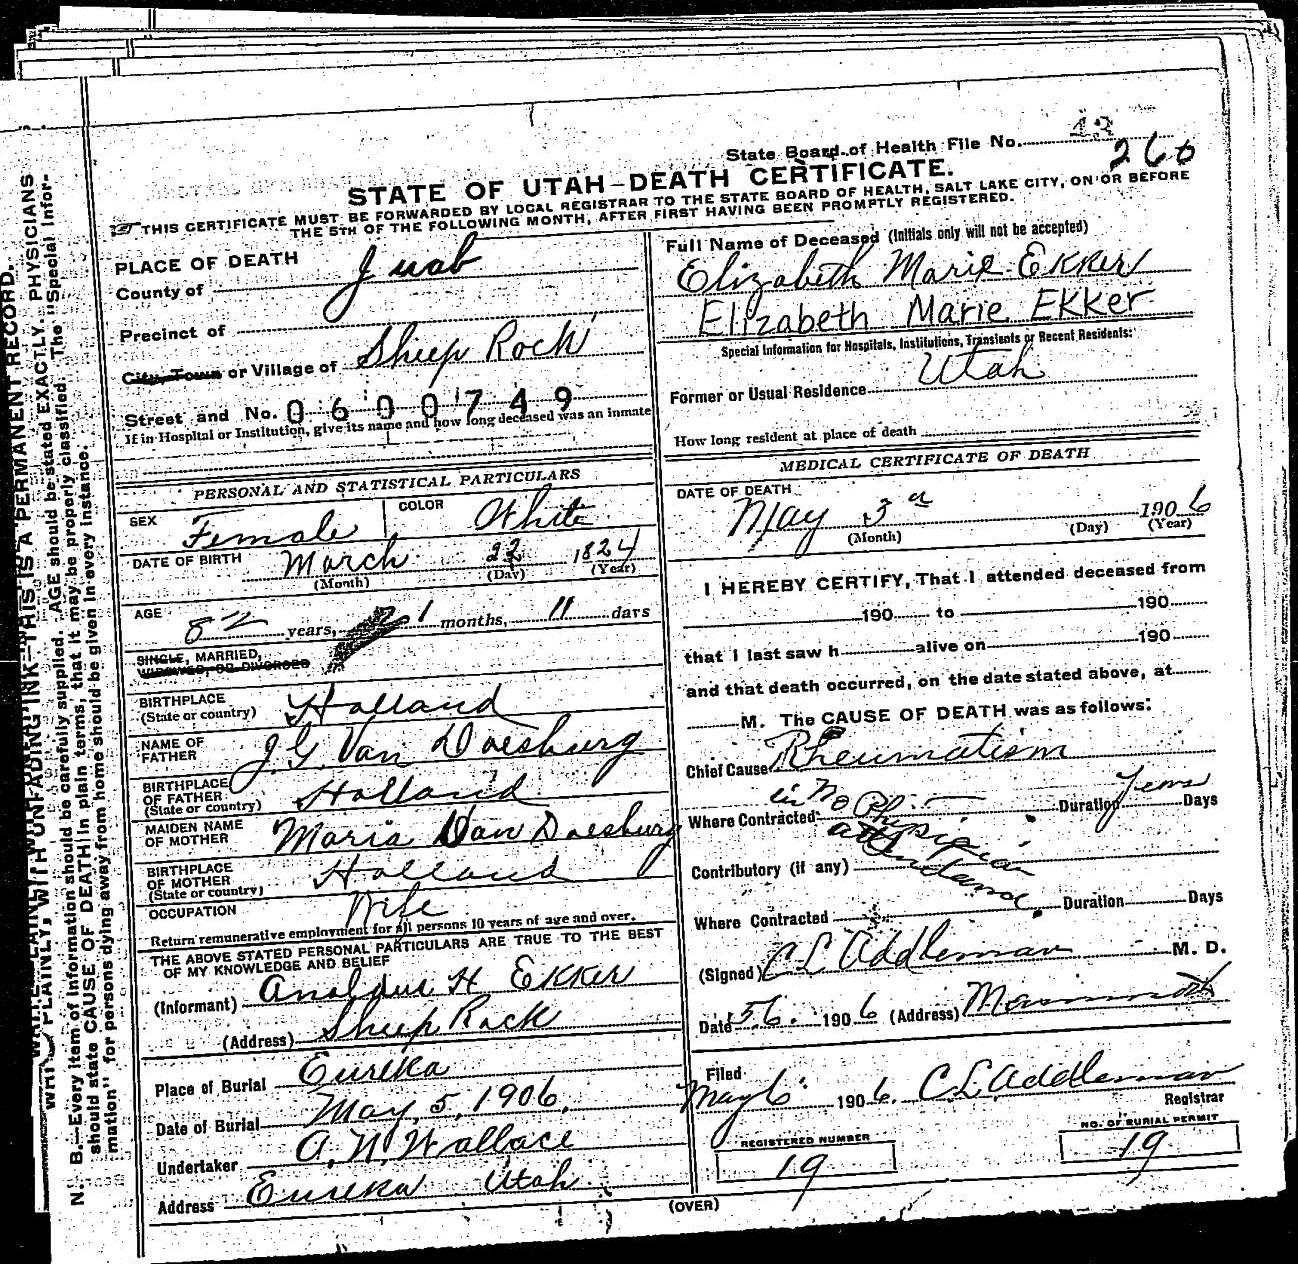 State Board of Health File No. 13
260
STATE OF UTAH-DEATH CERTIFICATE.
THIS CERTIFICATE MUST BE FORWARDED BY LOCAL REGISTRAR TO THE STATE BOARD OF HEALTH, SALT LAKE CITY, ON OR BEFORE
THE 5TH OF THE FOLLOWING MONTH, AFTER FIRST HAVING BEEN PROMPTLY REGISTERED.
PLACE OF DEATH
County of Juab
Precinct of
City, Town or Village of Sheep Rock
Street and No. 0600749
If in Hospital or Institution, give its name and how long deceased was an inmate
PERSONAL AND STATISTICAL PARTICULARS
SEX Female COLOR White
DATE OF BIRTH March 22 1824
(Month) (Day) (Year)
AGE 82 years, 1 months, 11 days
SINGLE, MARRIED,
WIDOWED, OR DIVORCED
BIRTHPLACE
(State or country) Holland
NAME OF
FATHER J. G. Van Doesburg
BIRTHPLACE
OF FATHER
(State or country) Holland
MAIDEN NAME
OF MOTHER Maria Van Doesburg
BIRTHPLACE
OF MOTHER
(State or country) Holland
OCCUPATION Wife
Return remunerative employment for all persons 10 years of age and over.
THE ABOVE STATED PERSONAL PARTICULARS ARE TRUE TO THE BEST
OF MY KNOWLEDGE AND BELIEF
(Informant) H EKKER
(Address) Sheep Rock
Place of Burial Eureka
Date of Burial May, 5, 1906.
Undertaker A. N. Wallace
Address Eureka Utah
Full Name of Deceased (Initials only will not be accepted)
Elizabeth Marie Ekker
Elizabeth Marie Ekker
Special Information for Hospitals, Institutions, Transients or Recent Residents:
Former or Usual Residence Utah
How long resident at place of death
MEDICAL CERTIFICATE OF DEATH
DATE OF DEATH
May 3 1906
(Month) (Day) (Year)
I HEREBY CERTIFY, That I attended deceased from
190 to 190
that I last saw h alive on 190
and that death occurred, on the date stated above, at
M. The CAUSE OF DEATH was as follows:
Chief Cause Rheumatism
Where Contracted in No Physician Duration Years Days
Contributory (if any) attendance.
Where Contracted Duration Days
(Signed) C L Addleman M. D.
Date 5.6. 1906 (Address) Mammoth
Filed
May 6 1906. C L. Addleman
Registrar
REGISTERED NUMBER
19
NO. OF BURIAL PERMIT
19
(OVER)
WRITE PLAINLY, WITH UNFADING INK—THIS IS A PERMANENT RECORD.
N. B.—Every item of information should be carefully supplied. AGE should be stated EXACTLY. PHYSICIANS
should state CAUSE OF DEATH in plain terms, that it may be properly classified. The "Special Infor-
mation" for persons dying away from home should be given in every instance.